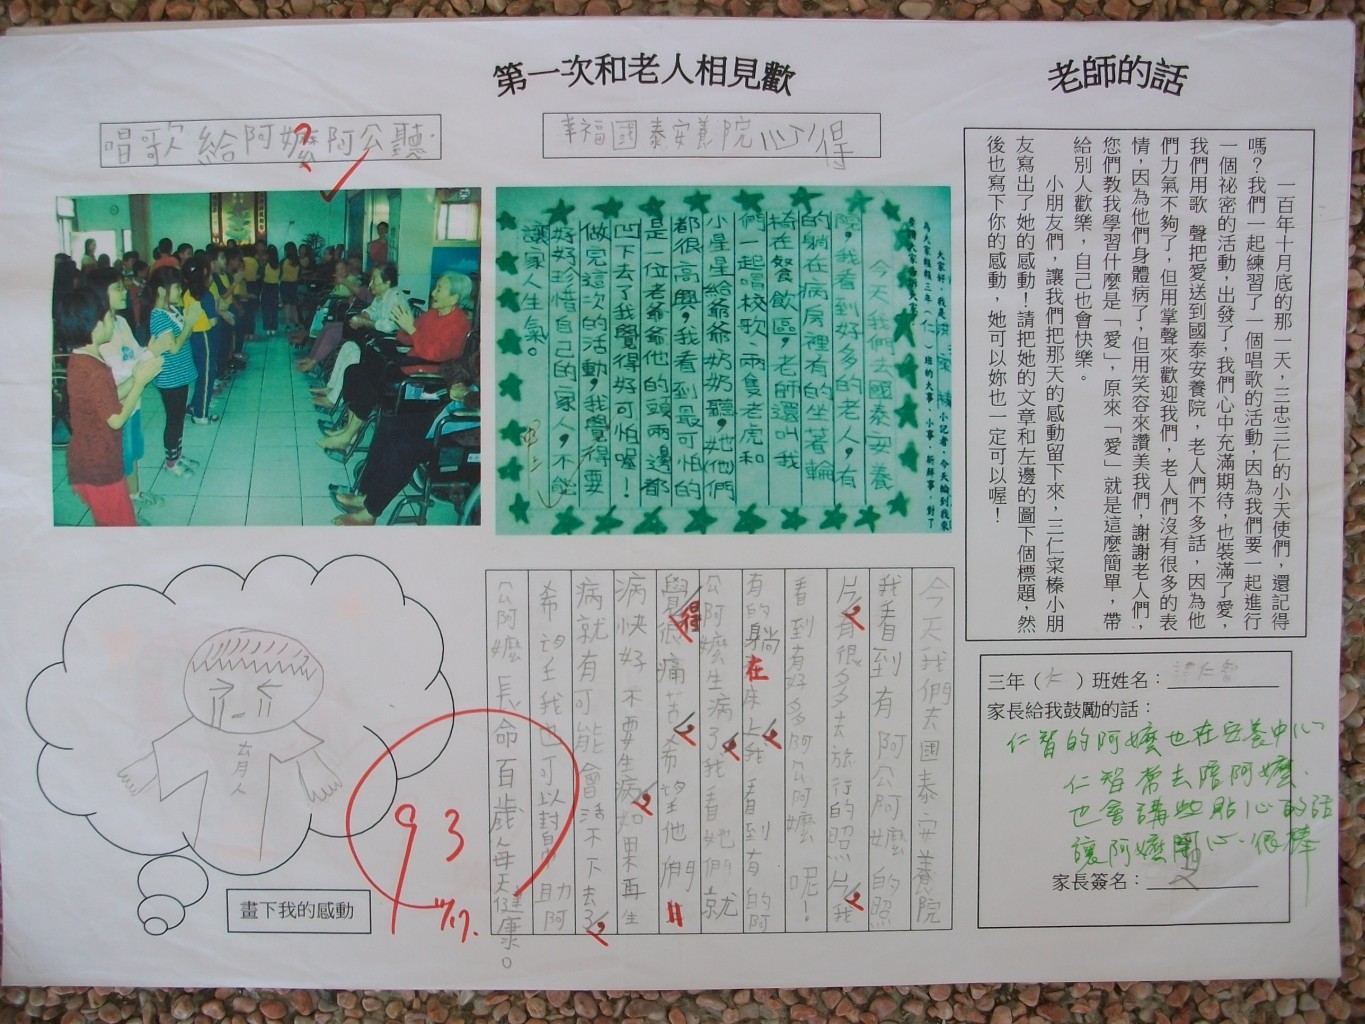 第一次和老人相見歡
老師的話
唱歌給阿嬤阿公聽
幸福國泰安養院心得
一百年十月底的那一天，三忠三仁的小天使們，還記得
嗎？我們一起練習了一個唱歌的活動，因為我們要一起進行
一個祕密的活動，出發了，我們心中充滿期待，也裝滿了愛，
我們用歌 聲把愛送到國泰安養院，老人們不多話，因為他
們力氣不夠了，但用掌聲來歡迎我們，老人們沒有很多的表
情，因為他們身體病了，但用笑容來讚美我們，謝謝老人們，
您們教我學習什麼是「愛」，原來「愛」就是這麼簡單，帶
給別人歡樂，自己也會快樂。
小朋友們，讓我們把那天的感動留下來，三仁寀榛小朋
友寫出了她的感動！請把她的文章和左邊的圖下個標題，然
後也寫下你的感動，她可以妳也一定可以喔！
今天我們去國泰安養
院，我看到好多的老人，有
的躺在病房裡有的坐著輪
椅在餐飲區，老師還叫我
們一起唱校歌、兩隻老虎和
小星星給爺爺奶奶聽，她他們
都很高興，我看到最可怕的
是一位老爺爺他的頭兩邊都
凹下去了我覺得好可怕喔！
做完這次的活動，我覺得要
好好珍惜自己的家人，不能
讓家人生氣。
今天我們去國泰安養院
我看到有阿公阿嬤的照
片有很多去旅行的照片我
看到有好多阿公阿嬤呢！
有的躺在床上我看到有的阿
公阿嬤生病了我看她們就
覺得很痛苦希望他們
病快好不要生病如果再生
病就有可能會活不下去了
希望我也可以幫助阿
公阿嬤長命百歲每天健康。
93
畫下我的感動
三年（仁）班姓名：
家長給我鼓勵的話：
仁智的阿嬤也在安養中心
仁智常去陪阿嬤.
也會講些貼心的話
讓阿嬤開心.很棒
家長簽名：